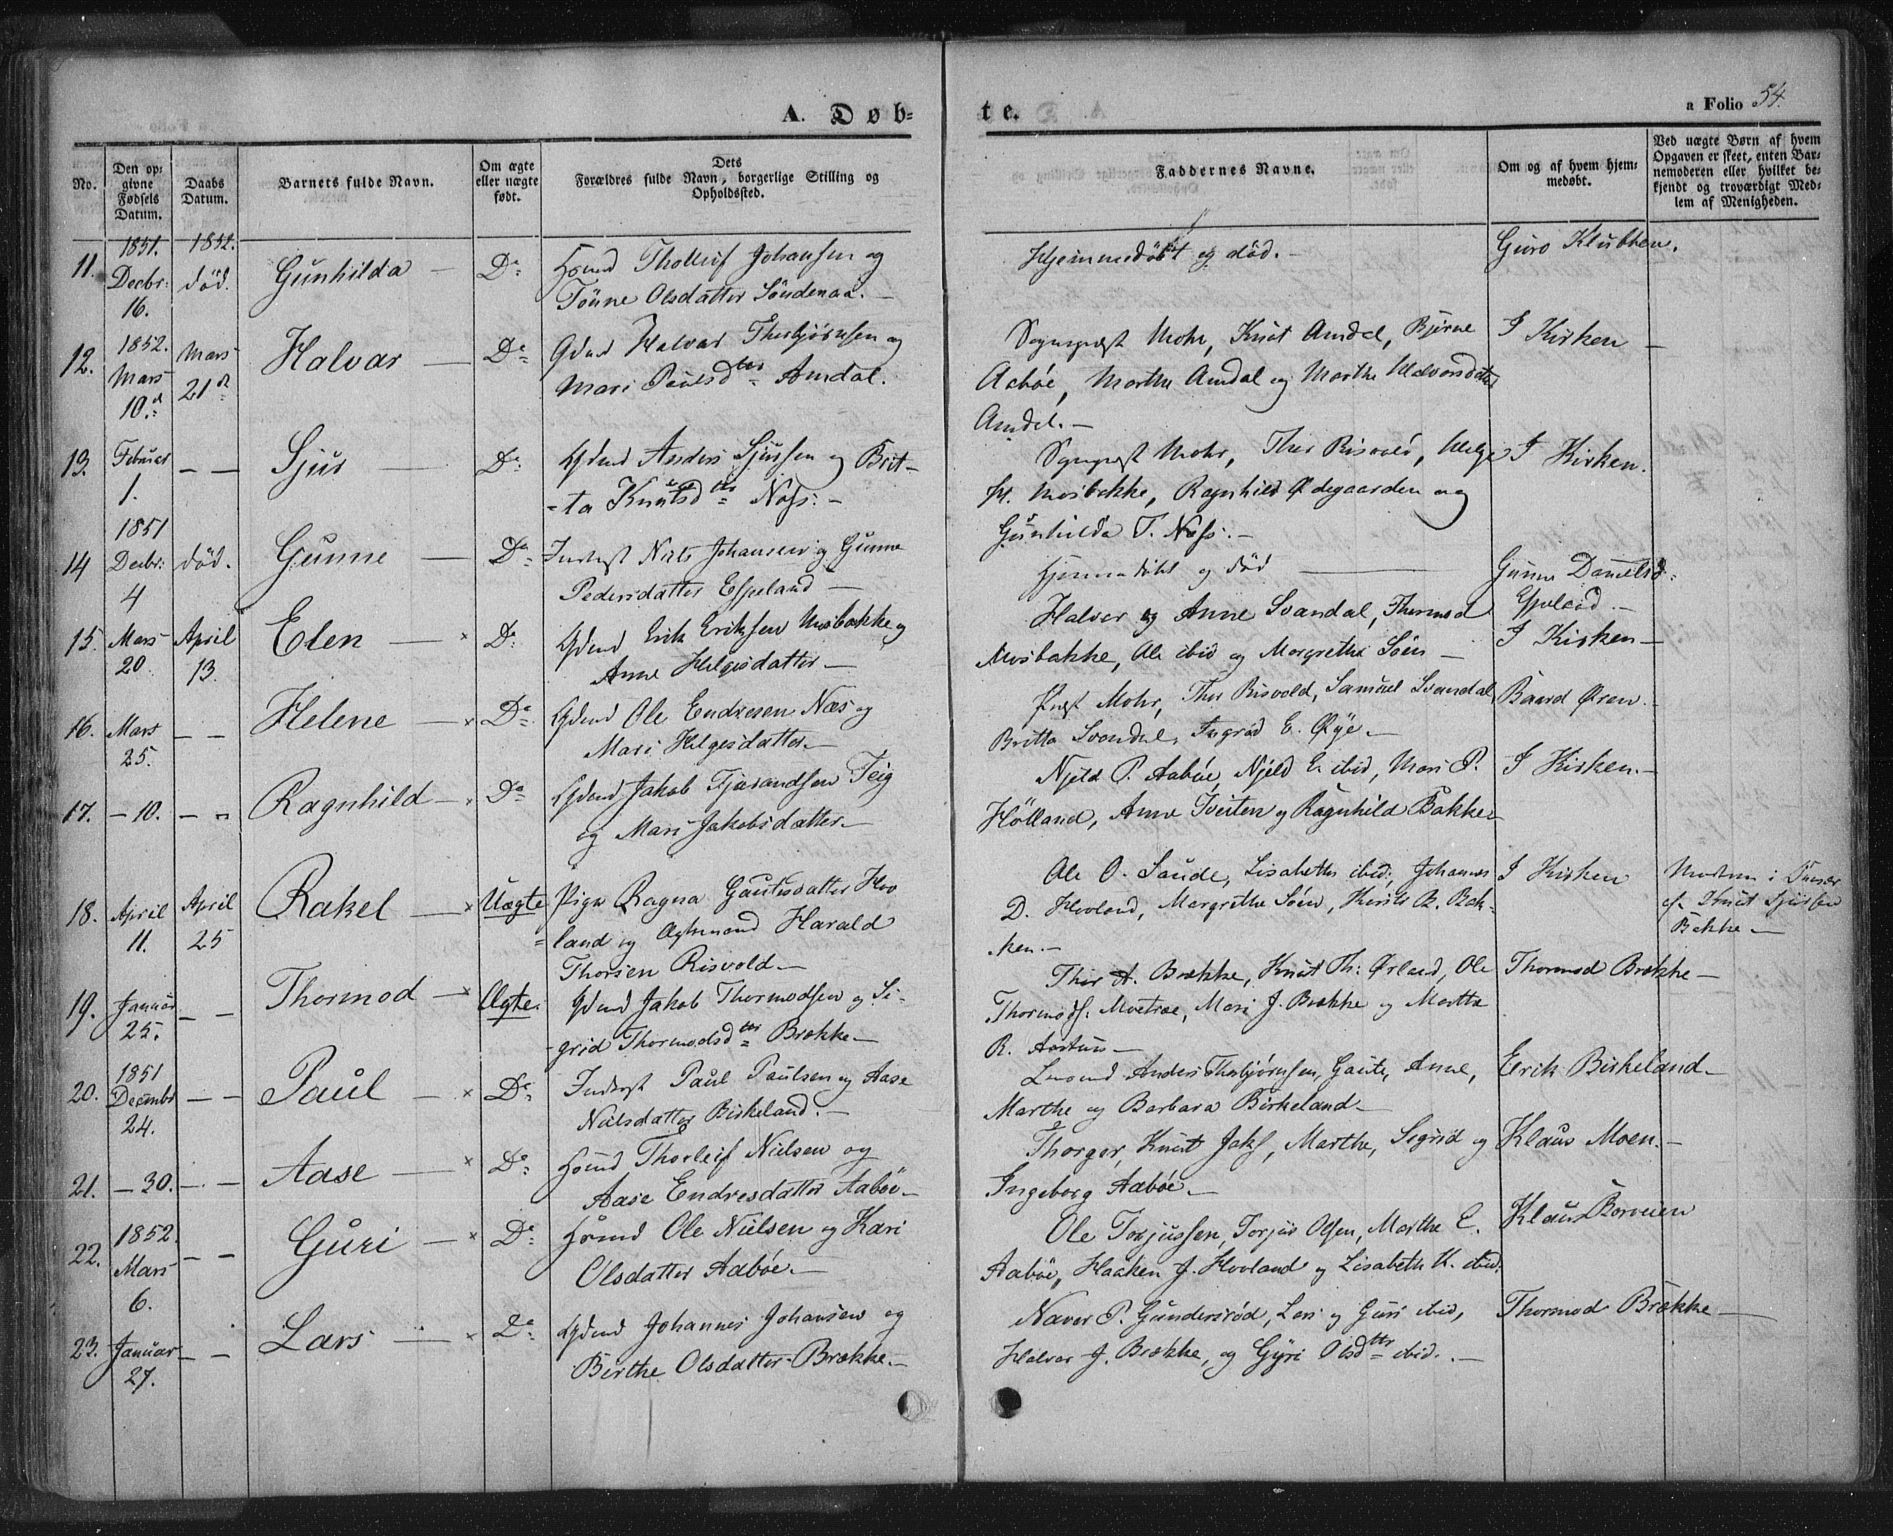 A. Døb-
te.
a Folio 54.
No.
Den op-
givne
Fødsels
Datum.
Daabs
Datum.
Barnets fulde Navn.
Om ægte
eller uægte
født.
Dets
Forældres fulde Navn, borgerlige Stilling og
Opholdssted.
Faddernes Navne.
Om og af hvem hjem-
medøbt.
Ved uægte Børn af hvem
Opgaven er skeet, enten Bar-
nemoderen eller hvilket be-
kjendt og troværdigt Med-
lem af Menigheden.
11. 1851. Decbr: 16. 1852. død. Gunhilda — De
Tholleif Johansen og
Tönne Olsdatter Söndenaa. —
Hjemmedöbt og död. —
Guro Klubben.
12. 1852. Mars 10.d Mars 21d Halvar — De
Gdmd Halvar Thorbjörnsen og
Mari Paulsdtter Amdal.
Sognepræst Mohr, Knut Amdal, Bjørne
Aabøe, Marthe Amdal og Marthe Halvorsdatter
Amdal. —
I Kirken —
13. Februar 1. — — Sjur — De
Gdmd Anders Sjursen og Brit-
-ta Knutsdtter Næss. —
Sognepræst Mohr, Thor Risvold, Helge
H. Mosbakke, Ragnhild Ødegaarden og
Gunhilda T. Næss. —
I Kirken.
14 1851 Decbr: 4 död. Gunne — De
Inderst Niels Johansen og Gunne
Pedersdatter Espeland —
Hjemmedöbt og död —
Gunne Danielsd:
Espeland. —
15. Mars 20. April 13. Elen — × De
Gdmd Erik Eriksen Mosbakke og
Anne Helgesdatter —
Halvor og Anne Svandal, Thormod
Mosbakke, Ole ibid og Margrethe Söen —
I Kirken —
16. Mars 25. — — Helene — × De
Gdmd Ole Endresen Næs og
Mari Helgesdatter. —
Præst Mohr, Thor Risvold, Samuel Svandal
Britta Svandal, Ingrid E. Øye. —
Baard Øren. —
17. — 10. — „ Ragnhild — × De
Gdmd Jakob Tjærandsen Teig
og Mari Jakobsdatter. —
Njeld P. Aabøe, Njeld E. ibid, Mari P.
Hölland, Anne Tveiten og Ragnhild Bakke
I Kirken. —
18. April 11. April 25 Rakel — × Uægte
Pige Ragna Gautesdatter Hov
land og Harald
Thorsen Risvold. —
Ole O. Saude, Lisabeth ibid, Johannes
D. Hovland, Margrethe Söen, B. Bak-
ken. —
I Kirken
Knut Sjursen
Bakke —
19. Januar 25. — — Thormod — × Ægte.
Gdmd Jakob Thormodsen og Si-
grid Thormodsdtter Brække —
Thor A. Brække, Knut Th: Ørland, Ole
Thormods: Moetræ, Mari J. Brække og Martha
R. Aartun —
Thormod Brække —
20. 1851 Decembr 24. — — Paul — × De
Inderst Paul Paulsen og Aase
Nielsdatter Birkeland. —
Anders Thorbjörnsen, Gaute, Anne,
Marthe og Barbara Birkeland —
Erik Birkeland —
21. — 30. — — Aase — × De
Thorleif Nielsen og
Aase Endresdatter Aabøe —
Thorger, Knut Jaks, Marthe, Sigrid og
Ingeborg Aabøe. —
Klaus Moen. —
22. 1852. Mars 6. — — Guri — × De
Ole Nielsen og Kari
Olsdatter Aabøe. —
Ole Torjussen, Torjus Olsen, Marthe E.
Aabøe, Haaken J. Hovland og Lisabeth K. ibid.
Klaus Borveien
23. Januar 27. — — Lars — × De
Gdmd Johannes Johansen og
Birthe Olsdatter Brække. —
Naver P. Gundersrød, Lars og Guri ibid,
Halvor J. Brække, og Gyri Olsdtter ibid. —
Thormod Brække —